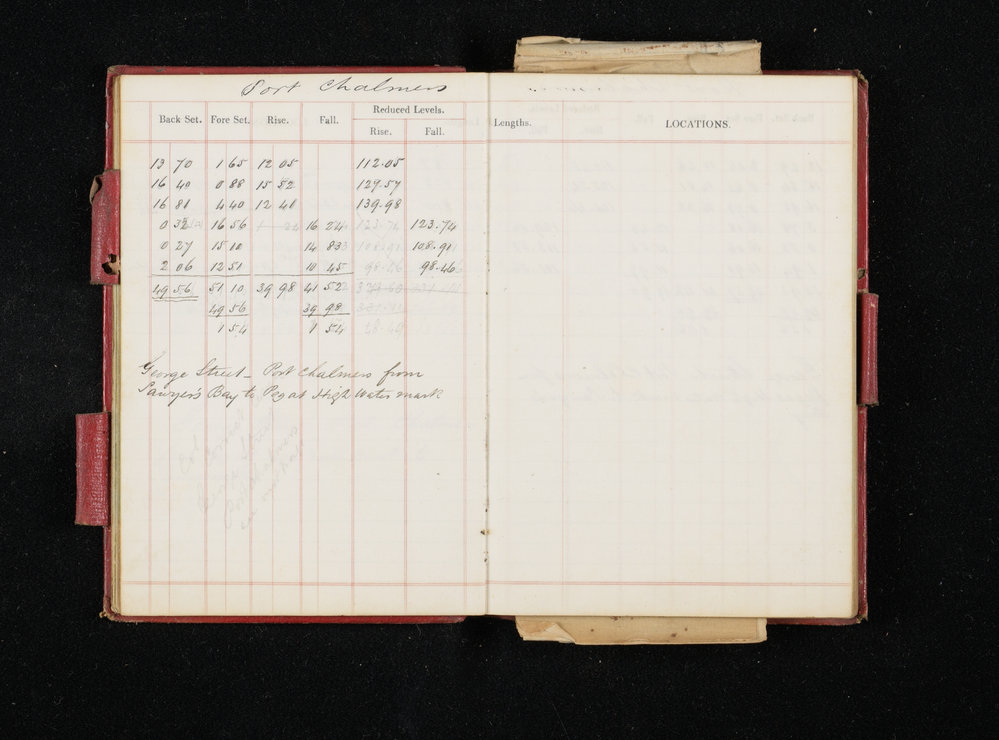 Port Chalmers
Reduced Levels.
Back Set. Fore Set. Rise. Fall. Rise. Fall. Lengths. LOCATIONS.
13 70 1 65 12 05 112.05
16 40 0 88 15 52 129.57
16 81 4 40 12 41 139.98
0 32 16 56 16 24 123.74 123.74
0 27 15 10 14 83 108.91 108.91
2 06 12 51 10 45 98.46 98.46
49 56 51 10 39 98 41 52
49 56 39 98
1 54 1 54
George Street - Port Chalmers from
Sawyer's Bay to Peg at High Water mark
Port Chalmers